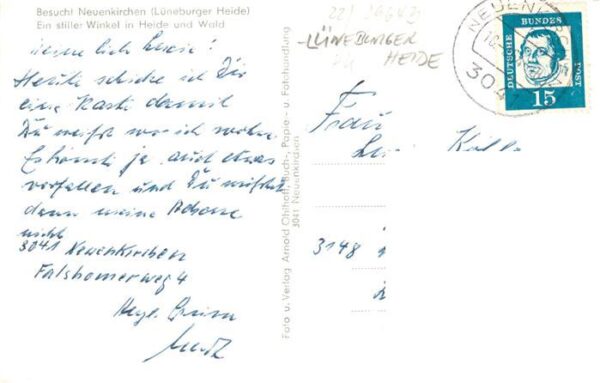 Besucht Neuenkirchen (Lüneburger Heide)
Ein stiller Winkel in Heide und Wald
Heute schicke ich Dir
eine Karte damit
Du weißt wo ich wohne.
Es könnte ja auch etwas
vorfallen und Du wüßtest
dann meine Adresse
nicht
3041 Neuenkirchen
Falshornerweg 4
Foto u. Verlag Arnold Ohlhoff, Buch-, Papier- u. Fotohandlung
3041 Neuenkirchen
LÜNEBURGER
HEIDE
Frau
3148
NEUENK
304
DEUTSCHE
BUNDES
POST
15